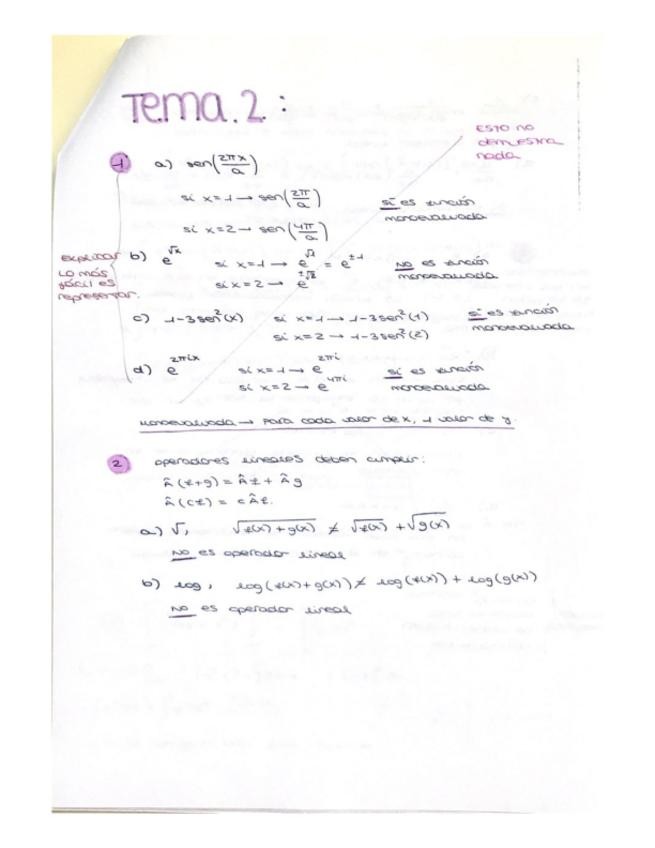 Tema.2:
ESTO NO
DEMUESTRA
NADA
1 a) sen(2πx/a)
si x=1 → sen(2π/a) si es función
monoevaluada
si x=2 → sen(4π/a)
explicar
Lo más
fácil es
representar.
b) e^√x si x=1 → e^√1 = e^±1 NO es función
monoevaluada
si x=2 → e^±√2
c) 1-3sen²(x) si x=1 → 1-3sen²(1) si es función
monoevaluada
si x=2 → 1-3sen²(2)
d) e^2πix si x=1 → e^2πi si es función
monoevaluada
si x=2 → e^4πi
Monoevaluada → Para cada valor de x, 1 valor de y.
2 operadores lineales deben cumplir:
Â(f+g) = Âf + Âg
Â(cf) = cÂf.
a) √, √f(x)+g(x) ≠ √f(x) + √g(x)
NO es operador lineal
b) log, log(f(x)+g(x)) ≠ log(f(x)) + log(g(x))
NO es operador lineal